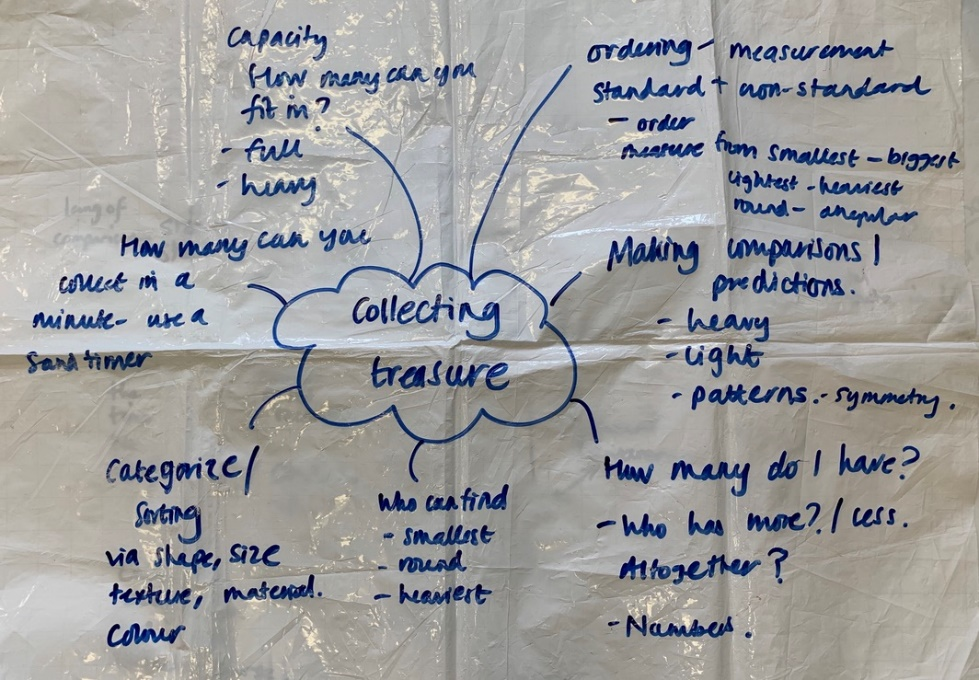 Capacity
How many can you
fit in?
- full
- heavy
ordering - measurement
standard + non-standard
- order
measure from smallest - biggest
lightest - heaviest
round - angular
How many can you
collect in a
minute - use a
sand timer
Collecting
treasure
Making comparisons /
predictions.
- heavy
- light
- patterns. - symmetry.
Categorize /
Sorting
via shape, size
texture, material.
Colour
Who can find
- smallest
- round
- heaviest
How many do I have?
- Who has more? / less.
Altogether?
- Numbers.